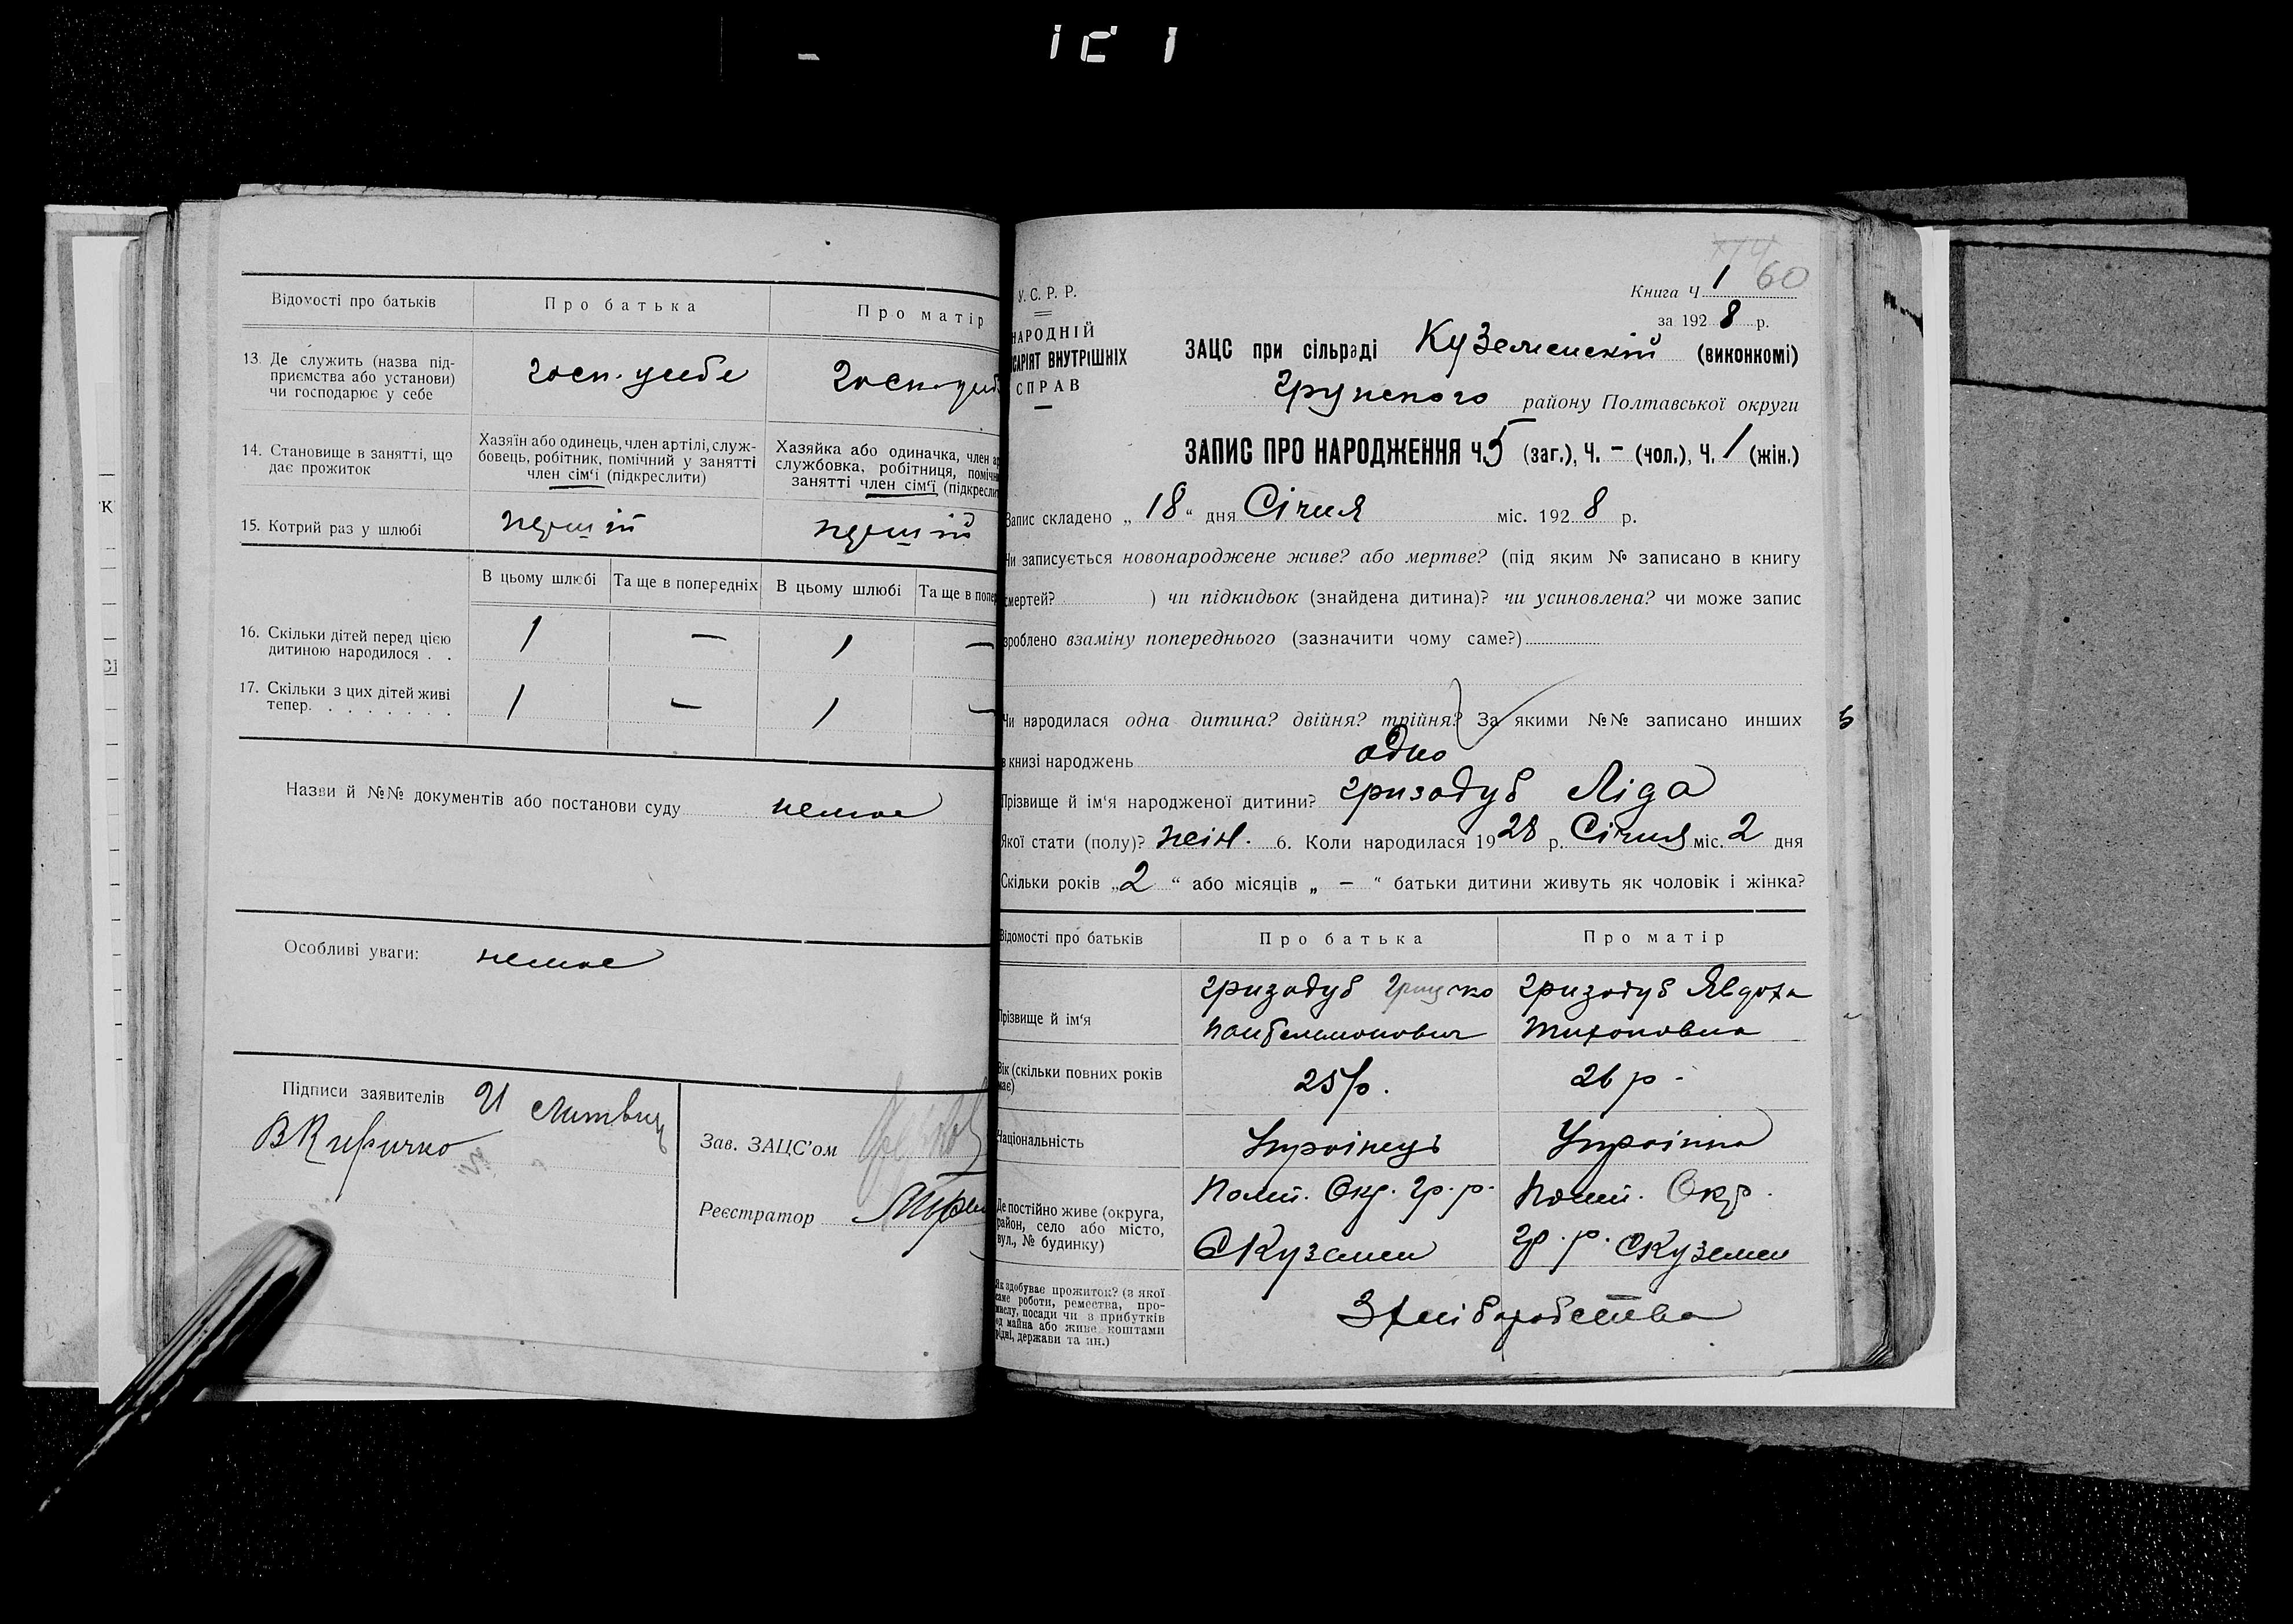 Відомості про батьків
Про батька
Про матір
13. Де служить (назва під-
приємства або установи)
чи господарює у себе
госп. усебе
госп. усеб
14. Становище в занятті, що
дає прожиток
Хазяїн або одинець, член артілі, служ-
бовець, робітник, помічний у занятті
член сім'ї (підкреслити)
Хазяйка або одиначка, член ар
службовка, робітниця, помічн
занятті член сім'ї (підкресли
15. Котрий раз у шлюбі
перший
перший
В цьому шлюбі
Та ще в попередніх
В цьому шлюбі
Та ще в попер
16. Скільки дітей перед цією
дитиною народилося . .
1 — 1 —
17. Скільки з цих дітей живі
тепер. . . . . . . .
1 — 1 —
Назви й №№ документів або постанови суду немає
Особливі уваги: немає
Підписи заявителів И Литвин
В Киричко
Зав. ЗАЦС'ом
Реєстратор
60
Книга Ч 1
за 1928 р.
У. С. Р. Р.
НАРОДНІЙ
САРІЯТ ВНУТРІШНІХ
СПРАВ
ЗАЦС при сільраді Куземенскій (виконкомі)
Грунского району Полтавської округи
ЗАПИС ПРО НАРОДЖЕННЯ Ч 5 (заг.), Ч. – (чол.), Ч. 1 (жін.)
Запис складено „ 18 “ дня Січня міс. 1928 р.
Чи записується новонароджене живе? або мертве? (під яким № записано в книгу
смертей? ) чи підкидьок (знайдена дитина)? чи усиновлена? чи може запис
зроблено взаміну попереднього (зазначити чому саме?)
Чи народилася одна дитина? двійня? трійня? За якими №№ записано инших
5
в книзі народжень одно
Прізвище й ім'я народженої дитини? Гризодуб Ліда
Якої стати (полу)? жін. 6. Коли народилася 1928 р. Січня міс. 2 дня
Скільки років „ 2 “ або місяців „ – “ батьки дитини живуть як чоловік і жінка?
Відомості про батьків
Про батька
Про матір
Прізвище й ім'я
Гризодуб Грицько
Пантелимонович
Гризодуб Явдоха
Тихоновна
Вік (скільки повних років
має)
25 р.
26 р -
Національність
Українець
Українка
Де постійно живе (округа,
район, село або місто,
вул., № будинку)
Полт. Окр. Гр. р.
С Куземен
Полт. Окр.
Гр. р. С Куземен
Як здобуває прожиток? (з якої
саме роботи, ремества, про-
мислу, посади чи з прибутків
од майна або живе коштами
рідні, держави та ин.)
З хліборобства